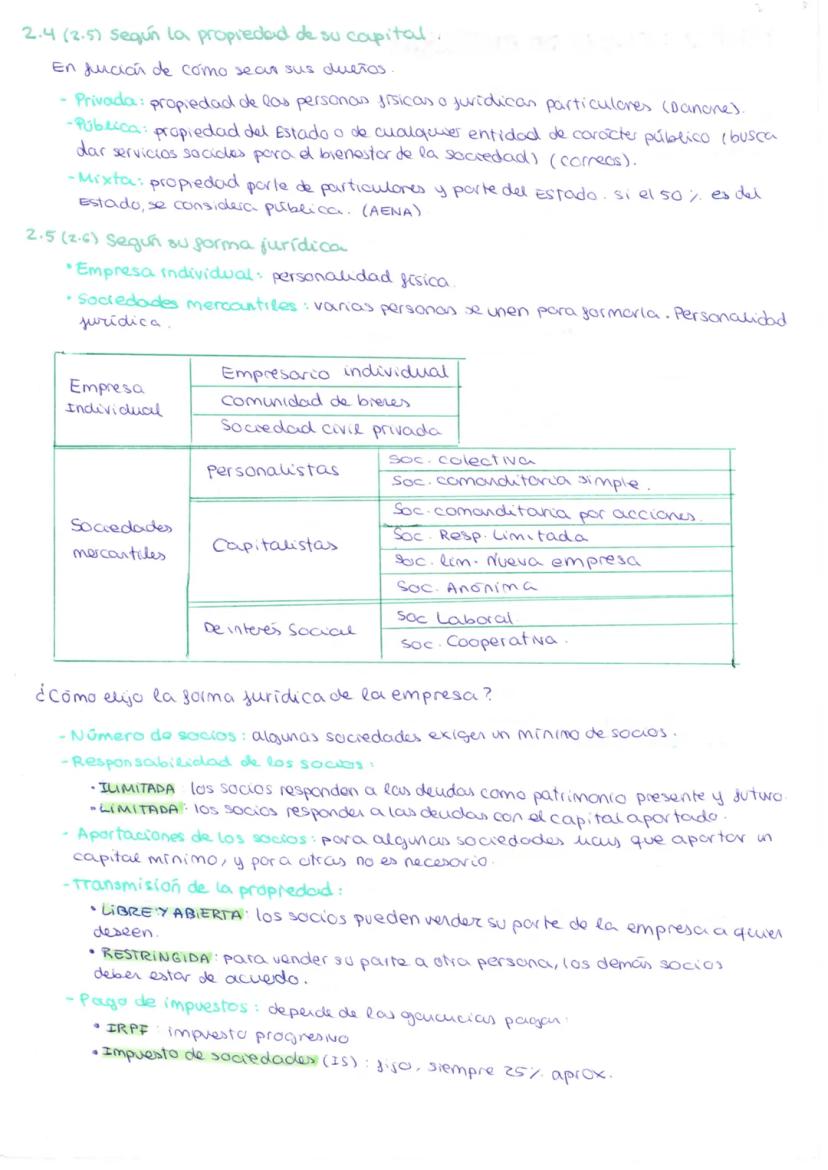 2.4 (2.5) Según la propiedad de su capital.
En función de cómo sean sus dueños.
- Privada: propiedad de las personas físicas o jurídicas particulares (Danone).
- Pública: propiedad del Estado o de cualquier entidad de carácter público (busca
dar servicios sociales para el bienestar de la sociedad) (correos).
- Mixta: propiedad parte de particulares y parte del Estado. si el 50% es del
Estado, se considera pública. (AENA)
2.5 (2.6) Según su forma jurídica
• Empresa individual: personalidad física.
• Sociedades mercantiles: varias personas se unen para formarla. Personalidad
jurídica.
Empresa
Individual
Empresario individual
Comunidad de bienes
Sociedad civil privada
Sociedades
mercantiles
Personalistas
Soc. colectiva
Soc. comanditaria simple.
Capitalistas
Soc. comanditaria por acciones.
Soc. Resp. Limitada
Soc. lim. Nueva empresa
Soc. Anónima
De interés Social
Soc Laboral
Soc. Cooperativa.
¿Cómo elijo la forma jurídica de la empresa?
- Número de socios: algunas sociedades exigen un mínimo de socios.
- Responsabilidad de los socios:
• ILIMITADA: los socios responden a las deudas como patrimonio presente y futuro.
• LIMITADA: los socios responden a las deudas con el capital aportado.
- Aportaciones de los socios: para algunas sociedades hay que aportar un
capital mínimo, y para otras no es necesario.
- Transmisión de la propiedad:
• LIBRE Y ABIERTA: los socios pueden vender su parte de la empresa a quien
deseen.
• RESTRINGIDA: para vender su parte a otra persona, los demás socios
deben estar de acuerdo.
- Pago de impuestos: depende de las ganancias pagan:
• IRPF: impuesto progresivo
• Impuesto de sociedades (IS): fijo, siempre 25% aprox.